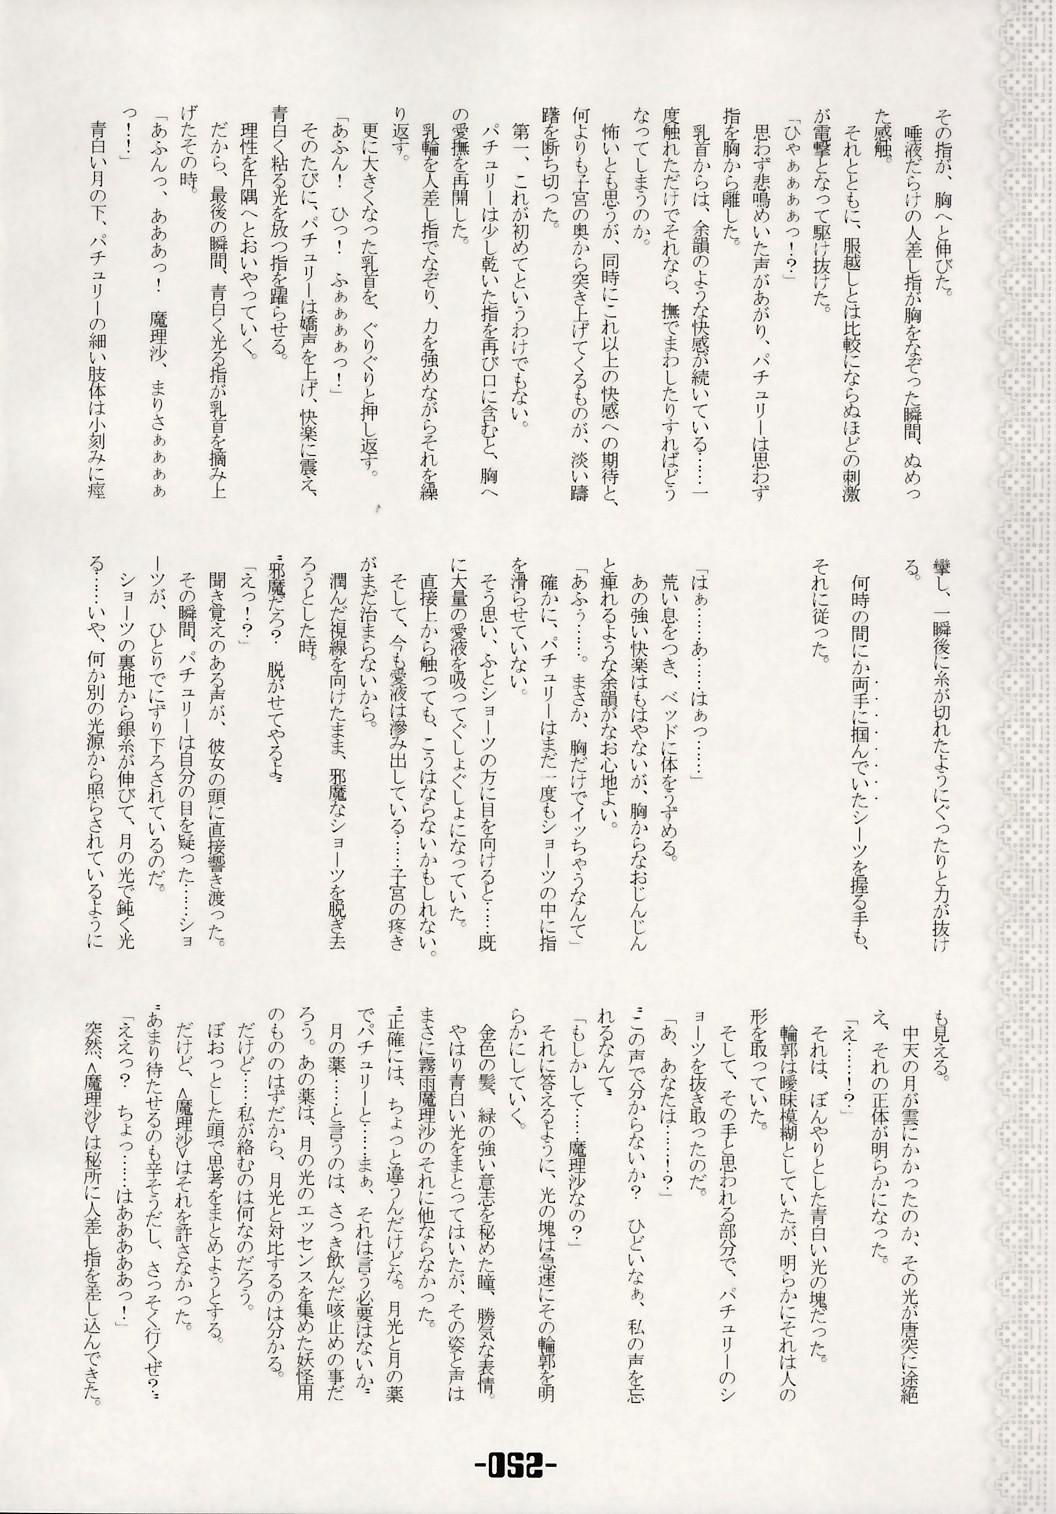 その指が、胸へと伸びた。
　唾液だらけの人差し指が胸をなぞった瞬間、ぬめっ
た感触。
　それとともに、服越しとは比較にならぬほどの刺激
が電撃となって駆け抜けた。
「ひゃぁぁぁぁっ！？」
　思わず悲鳴めいた声があがり、パチュリーは思わず
指を胸から離した。
　乳首からは、余韻のような快感が続いている……一
度触れただけでそれなら、撫でまわしたりすればどう
なってしまうのか。
　怖いとも思うが、同時にこれ以上の快感への期待と、
何よりも子宮の奥から突き上げてくるものが、淡い躊
躇を断ち切った。
　第一、これが初めてというわけでもない。
　パチュリーは少し乾いた指を再び口に含むと、胸へ
の愛撫を再開した。
　乳輪を人差し指でなぞり、力を強めながらそれを繰
り返す。
　更に大きくなった乳首を、ぐりぐりと押し返す。
「あふん！　ひっ！　ふぁぁぁぁっ！」
　そのたびに、パチュリーは嬌声を上げ、快楽に震え、
青白く粘る光を放つ指を躍らせる。
　理性を片隅へとおいやっていく。
　だから、最後の瞬間、青白く光る指が乳首を摘み上
げたその時。
「あふんっ、あああっ！　魔理沙、まりさぁぁぁぁ
っ！！」
　青白い月の下、パチュリーの細い肢体は小刻みに痙
攣し、一瞬後に糸が切れたようにぐったりと力が抜け
る。
　何時の間にか両手に掴んでいたシーツを握る手も、
それに従った。
「はぁ……あ……はぁっ……」
　荒い息をつき、ベッドに体をうずめる。
　あの強い快楽はもはやないが、胸からなおじんじん
と痺れるような余韻がなお心地よい。
「あふぅ……。まさか、胸だけでイッちゃうなんて」
　確かに、パチュリーはまだ一度もショーツの中に指
を滑らせていない。
　そう思い、ふとショーツの方に目を向けると……既
に大量の愛液を吸ってぐしょぐしょになっていた。
　直接上から触っても、こうはならないかもしれない。
　そして、今も愛液は滲み出している……子宮の疼き
がまだ治まらないから。
　潤んだ視線を向けたまま、邪魔なショーツを脱ぎ去
ろうとした時。
〝邪魔だろ？　脱がせてやるよ〟
「えっ！？」
　聞き覚えのある声が、彼女の頭に直接響き渡った。
　その瞬間、パチュリーは自分の目を疑った……ショ
ーツが、ひとりでにずり下ろされているのだ。
　ショーツの裏地から銀糸が伸びて、月の光で鈍く光
る……いや、何か別の光源から照らされているように
も見える。
　中天の月が雲にかかったのか、その光が唐突に途絶
え、それの正体が明らかになった。
「え……！？」
　それは、ぼんやりとした青白い光の塊だった。
　輪郭は曖昧模糊としていたが、明らかにそれは人の
形を取っていた。
　そして、その手と思われる部分で、パチュリーのシ
ョーツを抜き取ったのだ。
「あ、あなたは……！？」
〝この声で分からないか？　ひどいなぁ、私の声を忘
れるなんて〟
「もしかして……魔理沙なの？」
　それに答えるように、光の塊は急速にその輪郭を明
らかにしていく。
　金色の髪、緑の強い意志を秘めた瞳、勝気な表情。
　やはり青白い光をまとってはいたが、その姿と声は
まさに霧雨魔理沙のそれに他ならなかった。
〝正確には、ちょっと違うんだけどな。月光と月の薬
でパチュリーと……まぁ、それは言う必要はないか〟
　月の薬……と言うのは、さっき飲んだ咳止めの事だ
ろう。あの薬は、月の光のエッセンスを集めた妖怪用
のもののはずだから、月光と対比するのは分かる。
　だけど……私が絡むのは何なのだろう。
　ぼおっとした頭で思考をまとめようとする。
　だけど、＜魔理沙＞はそれを許さなかった。
〝あまり待たせるのも辛そうだし、さっそく行くぜ？〟
「ええっ？　ちょっ……はああああぁっ！」
　突然、＜魔理沙＞は秘所に人差し指を差し込んできた。
-052-